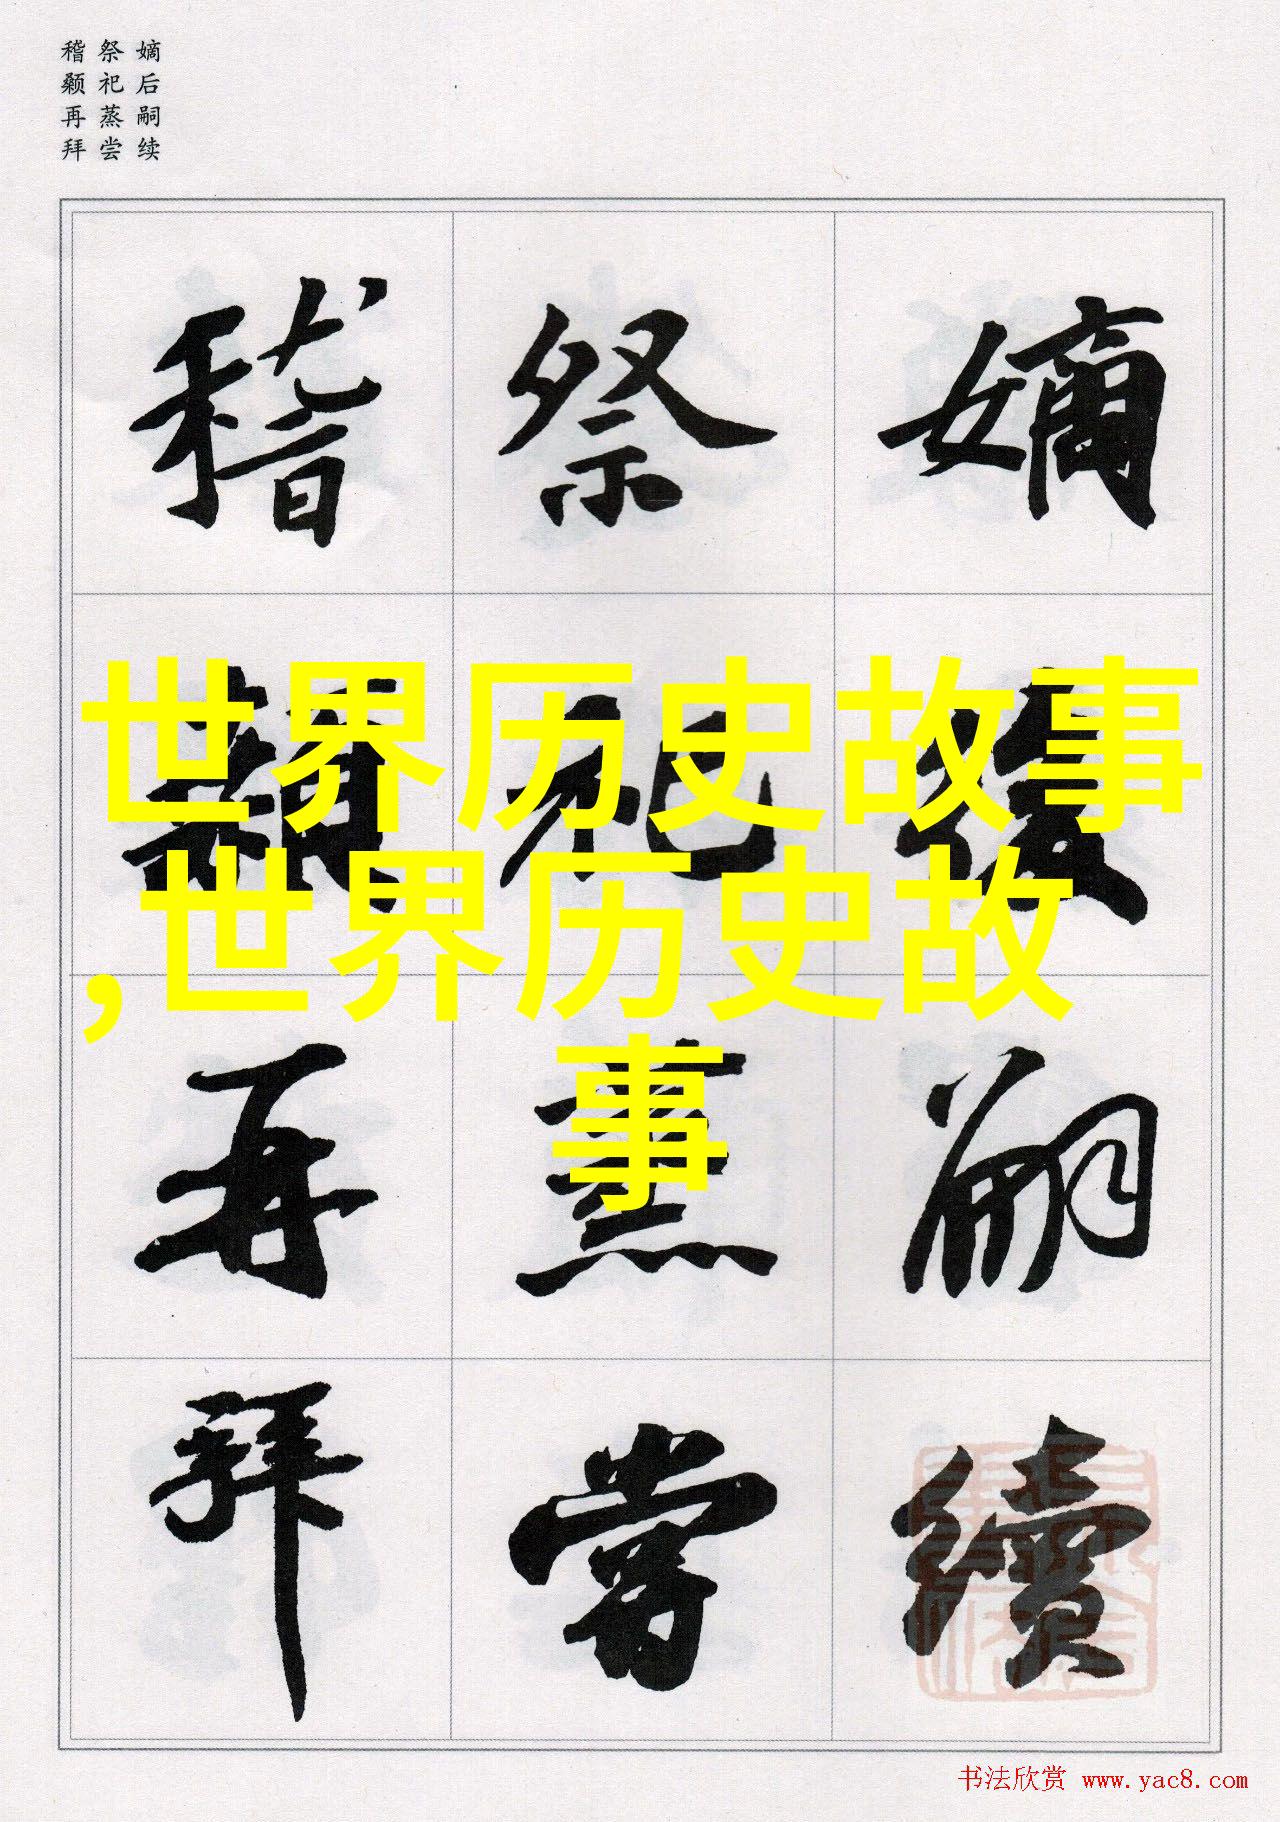 嫡后嗣续
祭祀蒸尝
稽颡再拜
嫡後嗣續
祭祀蒸嘗
稽顙再拜
世界历史故事
,世界历史故
事
书法欣赏 www.yac8.com